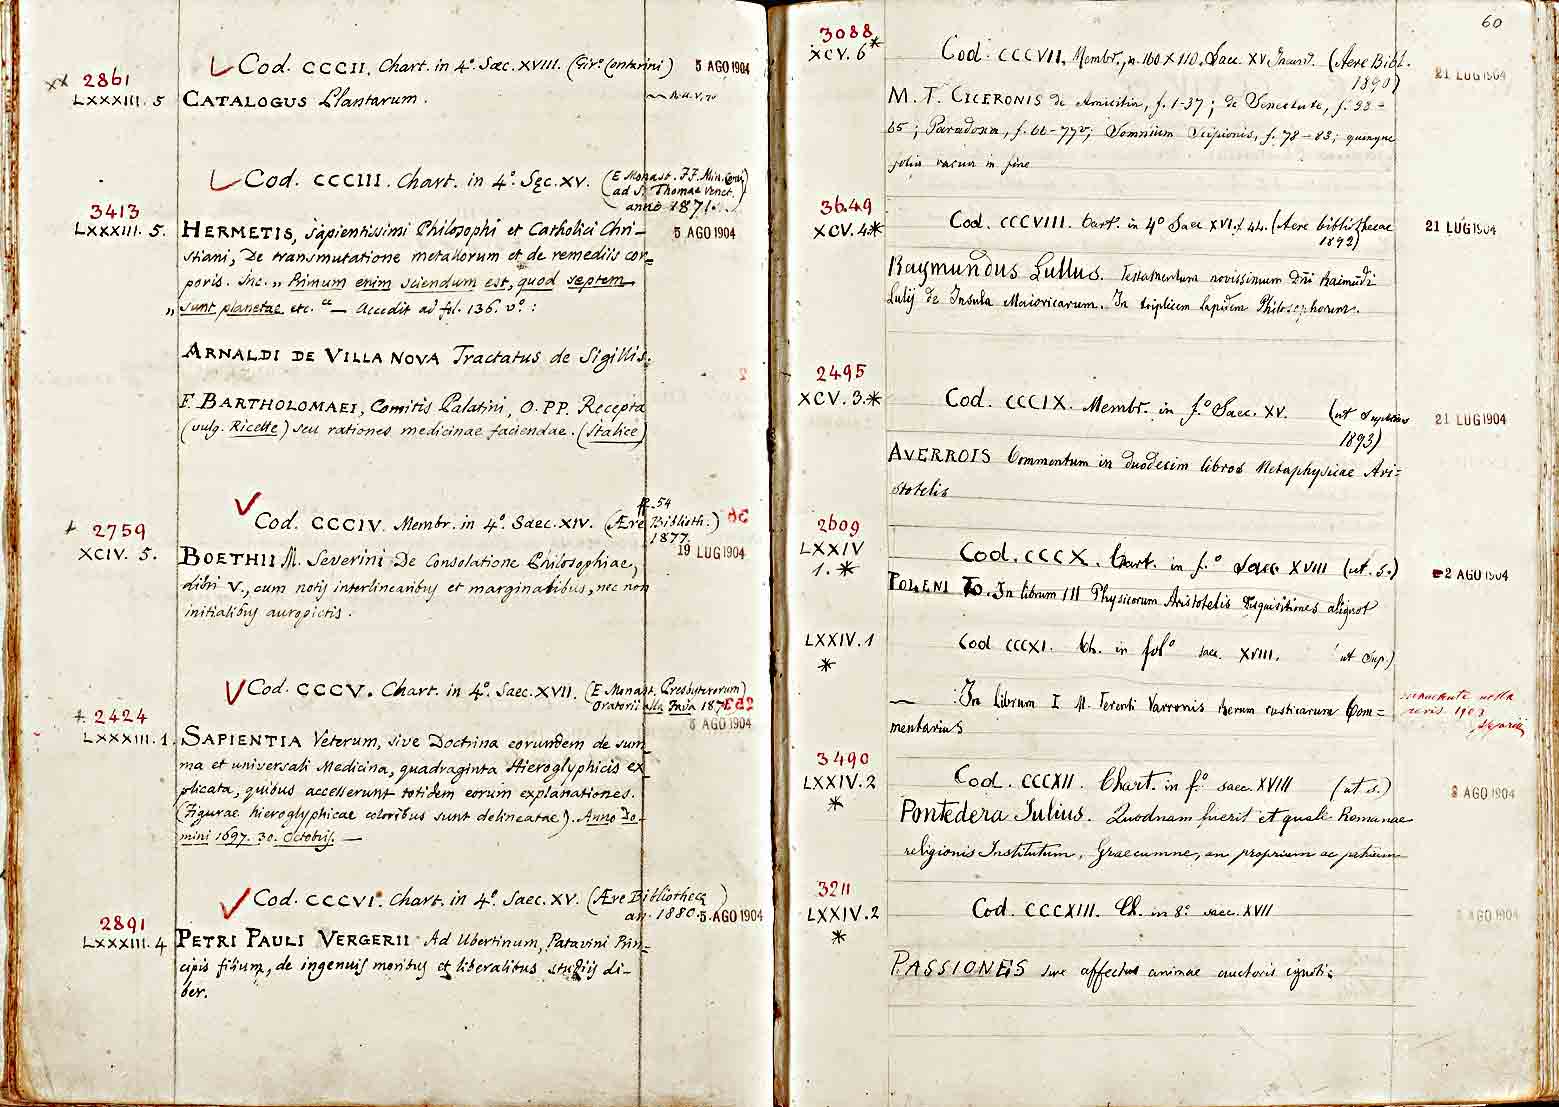 2861
LXXXIII. 5
Cod. CCCII. Chart. in 4º. Sæc. XVIII. (Gir.º Contarini)
5 AGO 1904
CATALOGUS Plantarum.
Cod. CCCIII. Chart. in 4º. Sęc. XV. (E Monast. FF. Min. Conv.
ad S. Thomae Venet.
anno 1871.
3413
LXXXIII. 5.
HERMETIS, sapientissimi Philosophi et Catholici Chri-
5 AGO 1904
stiani, De transmutatione metallorum et de remediis cor=
poris. Inc. „ Primum enim sciendum est, quod septem
„ sunt planetae etc.“ — Accedit ad fol. 136. vº. :
ARNALDI DE VILLA NOVA Tractatus de Sigillis.
F. BARTHOLOMAEI, Comitis Palatini, O. PP. Recepta
(vulg. Ricette) seu rationes medicinae faciendae. (Italice)
ff. 54
Cod. CCCIV. Membr. in 4º. Saec. XIV. (Ære Biblioth.)
1877.
2759
XCIV. 5.
19 LUG 1904
BOETHII M. Severini De Consolatione Philosophiae,
Libri V., cum notis interlinearibus et marginalibus, nec non
initialibus auropictis.
Cod. CCCV. Chart. in 4º. Saec. XVII. (E Monast. Presbyterorum)
Oratorii alla Fava 187
5 AGO 1904
2424
LXXXIII. 1.
SAPIENTIA Veterum, sive Doctrina eorundem de sum-
ma et universali Medicina, quadraginta Hieroglyphicis ex
plicata, quibus accesserunt totidem eorum explanationes.
(Figurae hieroglyphicae coloribus sunt delineatae). Anno Do-
mini 1697. 30. Octobris. —
Cod. CCCVI. Chart. in 4º. Saec. XV. (Ære Bibliothecæ)
an. 1880.
5 AGO 1904
2891
LXXXIII. 4
PETRI PAULI VERGERII Ad Ubertinum, Patavini Prin=
cipis filium, de ingenuis moribus et liberalibus studiis li-
ber.
60
3088
XCV. 6*
Cod. CCCVII. Membr., n. 160 x 110. Saec. XV. (Aere Bibl.
1890)
21 LUG 1904
M. T. CICERONIS de Amicitia, f. 1-37; de Senectute, f. 38-
65; Paradoxa, f. 66-77v; Somnium Scipionis, f. 78-83; quinque
folia vacua in fine
3649
XCV. 4*
Cod. CCCVIII. Cart. in 4º Saec XVI. f. 44. (Aere bibliothecae
1892)
21 LUG 1904
Raymundus Lullus. Testamentum novissimum Dñi Raimũdi
Lulij de Insula Maioricarum. In triplicem lapidem Philosophorum.
2495
XCV. 3.*
Cod. CCCIX. Membr. in f.º Saec. XV. (ut Superius
1893)
21 LUG 1904
AVERROIS Commentum in duodecim libros Metaphysicae Ari=
stotelis
2609
LXXIV
1. *
Cod. CCCX. Chart. in f.º Saec. XVIII (ut. s.)
2 AGO 1904
POLENI Jo. In librum III Physicorum Aristotelis Disquisitiones aliquot
LXXIV. 1
*
Cod CCCXI. Ch. in folº saec. XVIII. (ut sup.)
In Librum I M. Terenti Varronis Rerum rusticarum Com=
mentarius
3490
LXXIV. 2
*
Cod. CCCXII. Chart. in fº. saec. XVIII (ut s.)
2 AGO 1904
Pontedera Iulius. Quodnam fuerit et quale Romanae
religionis Institutum, Graecumne, an proprium ac patrium
3211
LXXIV. 2
*
Cod. CCCXIII. Ch. in 8º. saec. XVII
AGO 1904
PASSIONES sive affectus animae auctoris ignoti.